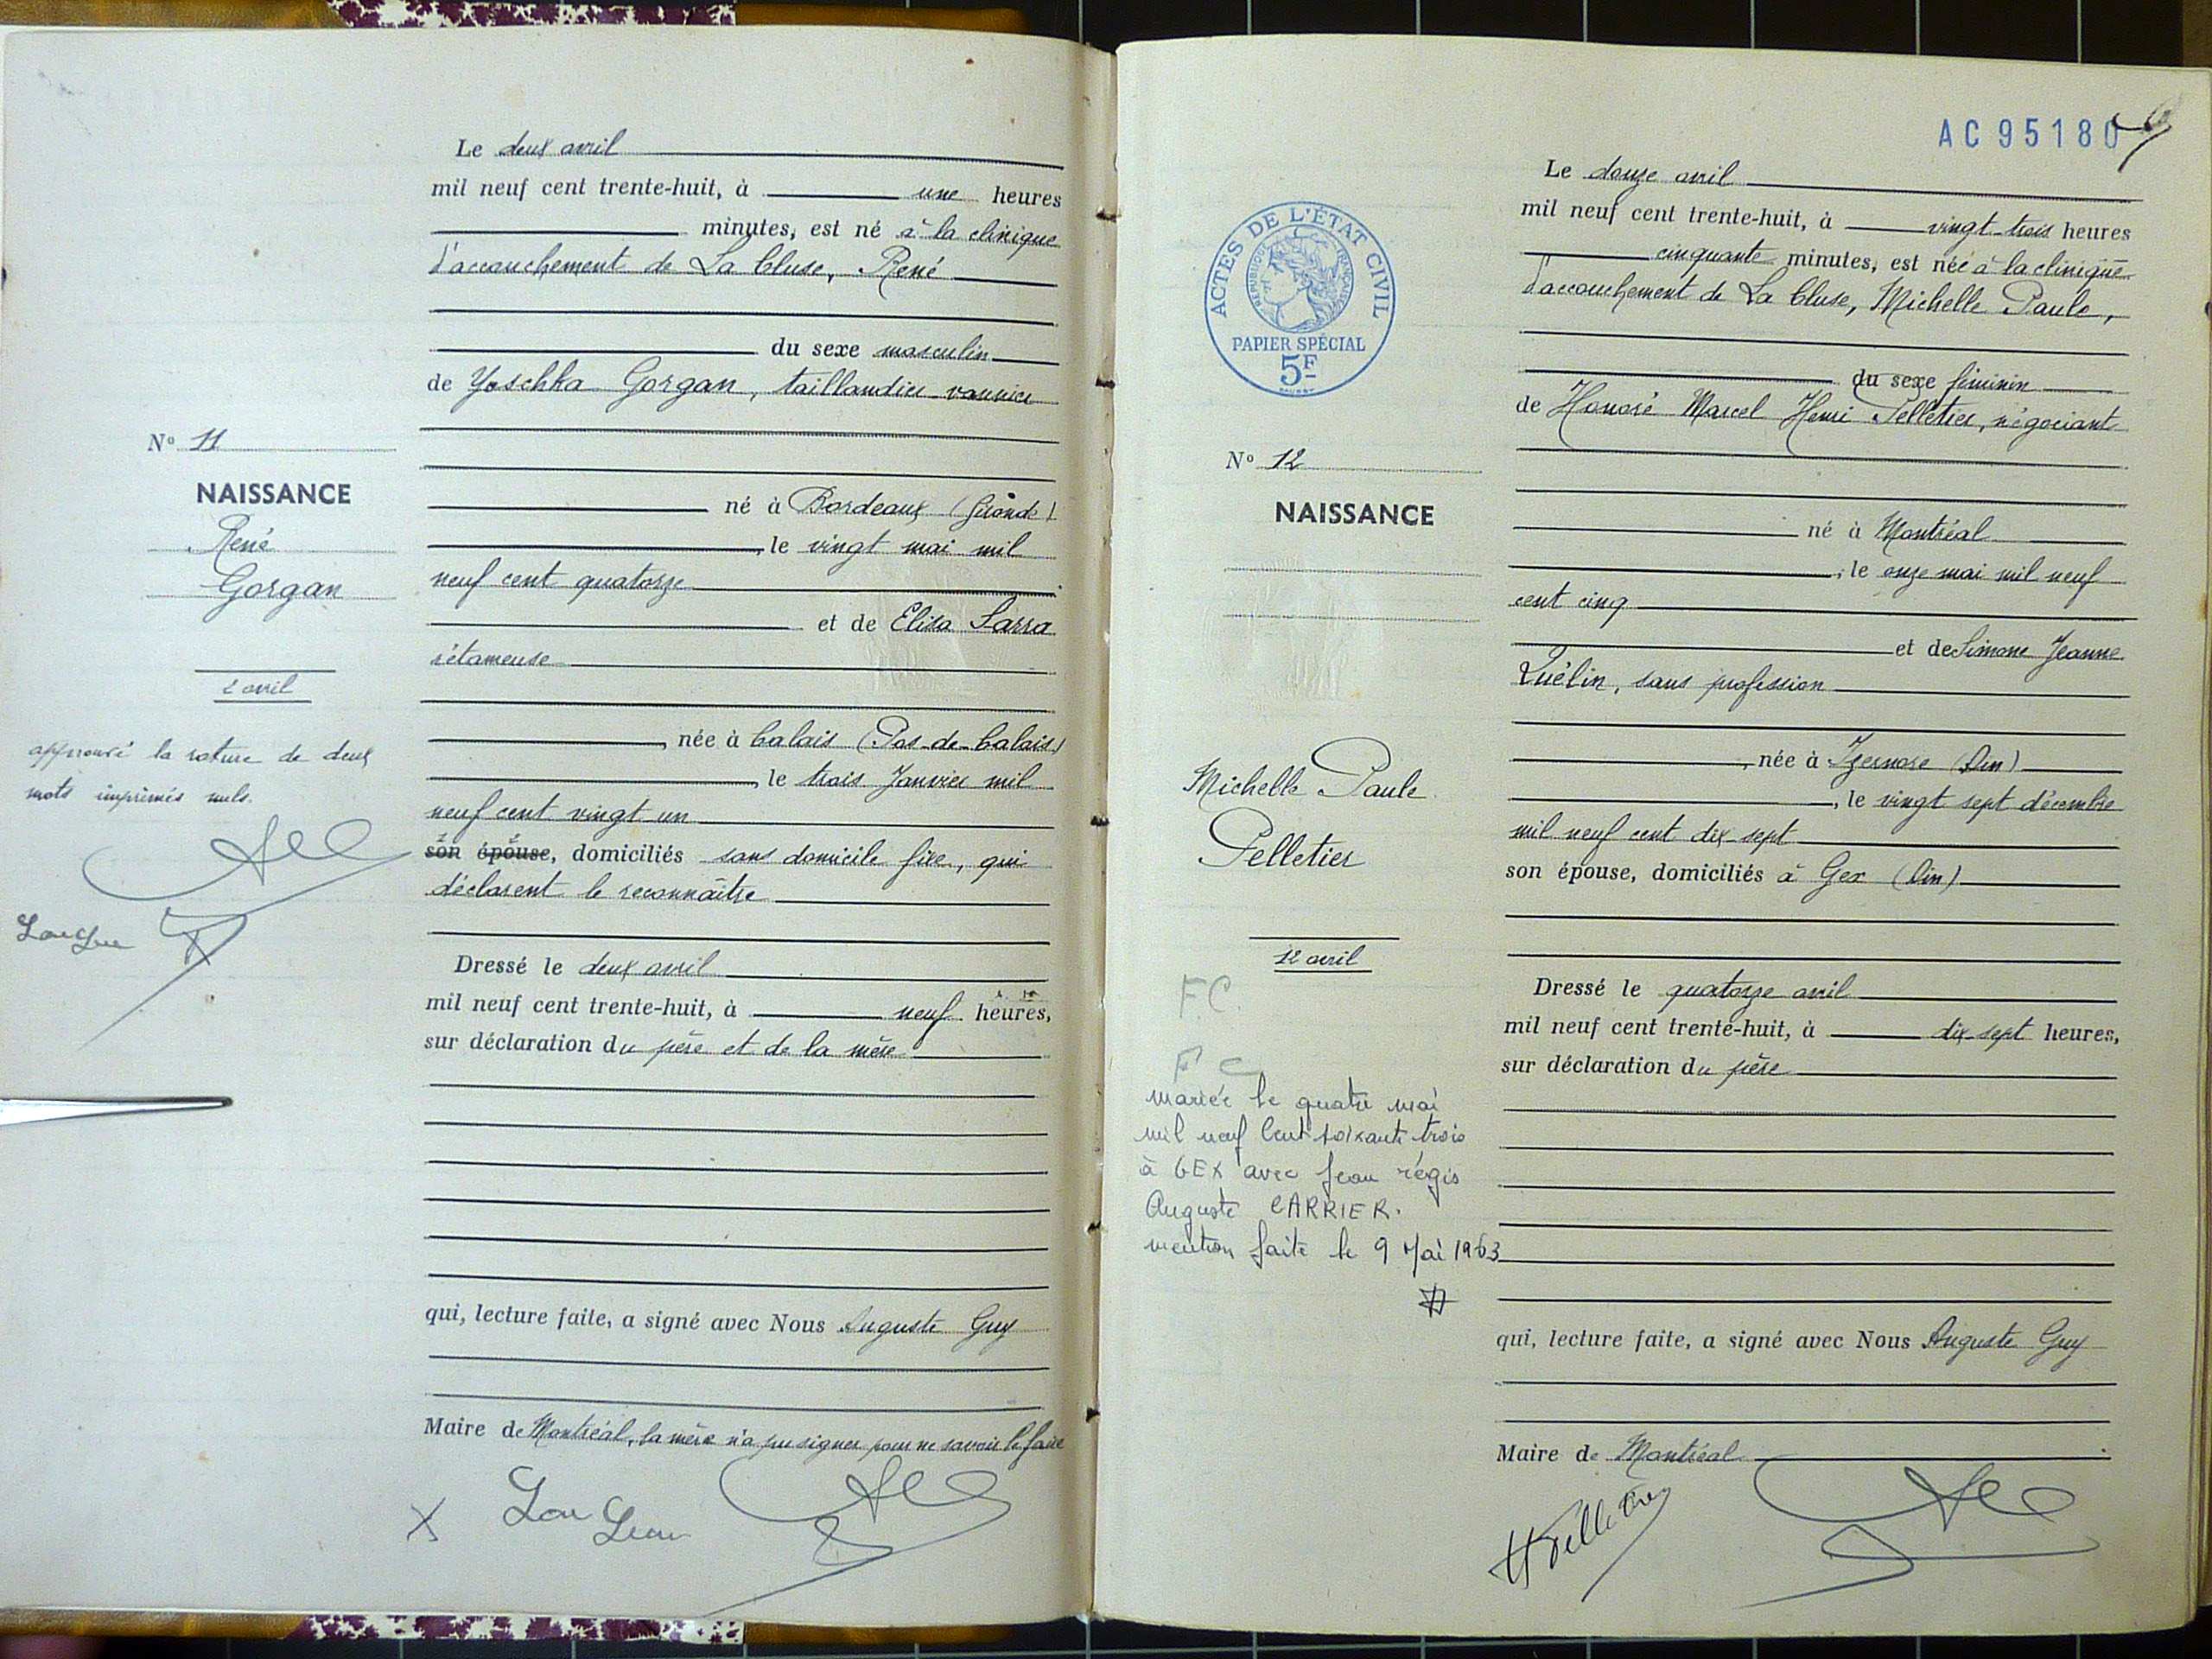 Le deux avril
mil neuf cent trente-huit, à une heures
minutes, est né à la clinique
d'accouchement de La Cluse, René
du sexe masculin
de Yoschka Gorgan, taillandier vannier
né à Bordeaux (Gironde)
, le vingt mai mil
neuf cent quatorze
et de Elisa Sarra
rétameuse
, née à Calais (Pas-de-Calais)
, le trois Janvier mil
neuf cent vingt un
son épouse, domiciliés sans domicile fixe, qui
déclarent le reconnaître
Dressé le deux avril
mil neuf cent trente-huit, à neuf heures,
sur déclaration du père et de la mère
qui, lecture faite, a signé avec Nous Auguste Guy
Maire de Montréal, la mère n'a pu signer pour ne savoir le faire
X
No 11
NAISSANCE
René
Gorgan
2 avril
approuvé la rature de deux
mots imprimés nuls.
AC 95180
Le douze avril
mil neuf cent trente-huit, à vingt-trois heures
cinquante minutes, est née à la clinique
d'accouchement de La Cluse, Michelle Paule,
du sexe féminin
de Honoré Marcel Henri Pelletier, négociant
né à Montréal
, le onze mai mil neuf
cent cinq
et de Simone Jeanne
Quélin, sans profession
, née à Izernore (Ain)
, le vingt sept décembre
mil neuf cent dix-sept
son épouse, domiciliés à Gex (Ain)
Dressé le quatorze avril
mil neuf cent trente-huit, à dix-sept heures,
sur déclaration du père
qui, lecture faite, a signé avec Nous Auguste Guy
Maire de Montréal
HPelletier
ACTES DE L'ÉTAT CIVIL
RÉPUBLIQUE FRANÇAISE
PAPIER SPÉCIAL
5F
No 12
NAISSANCE
Michelle Paule
Pelletier
12 avril
F.C.
F C
mariée le quatre mai
mil neuf cent soixante trois
à GEX avec Jean régis
Auguste CARRIER.
mention faite le 9 Mai 1963